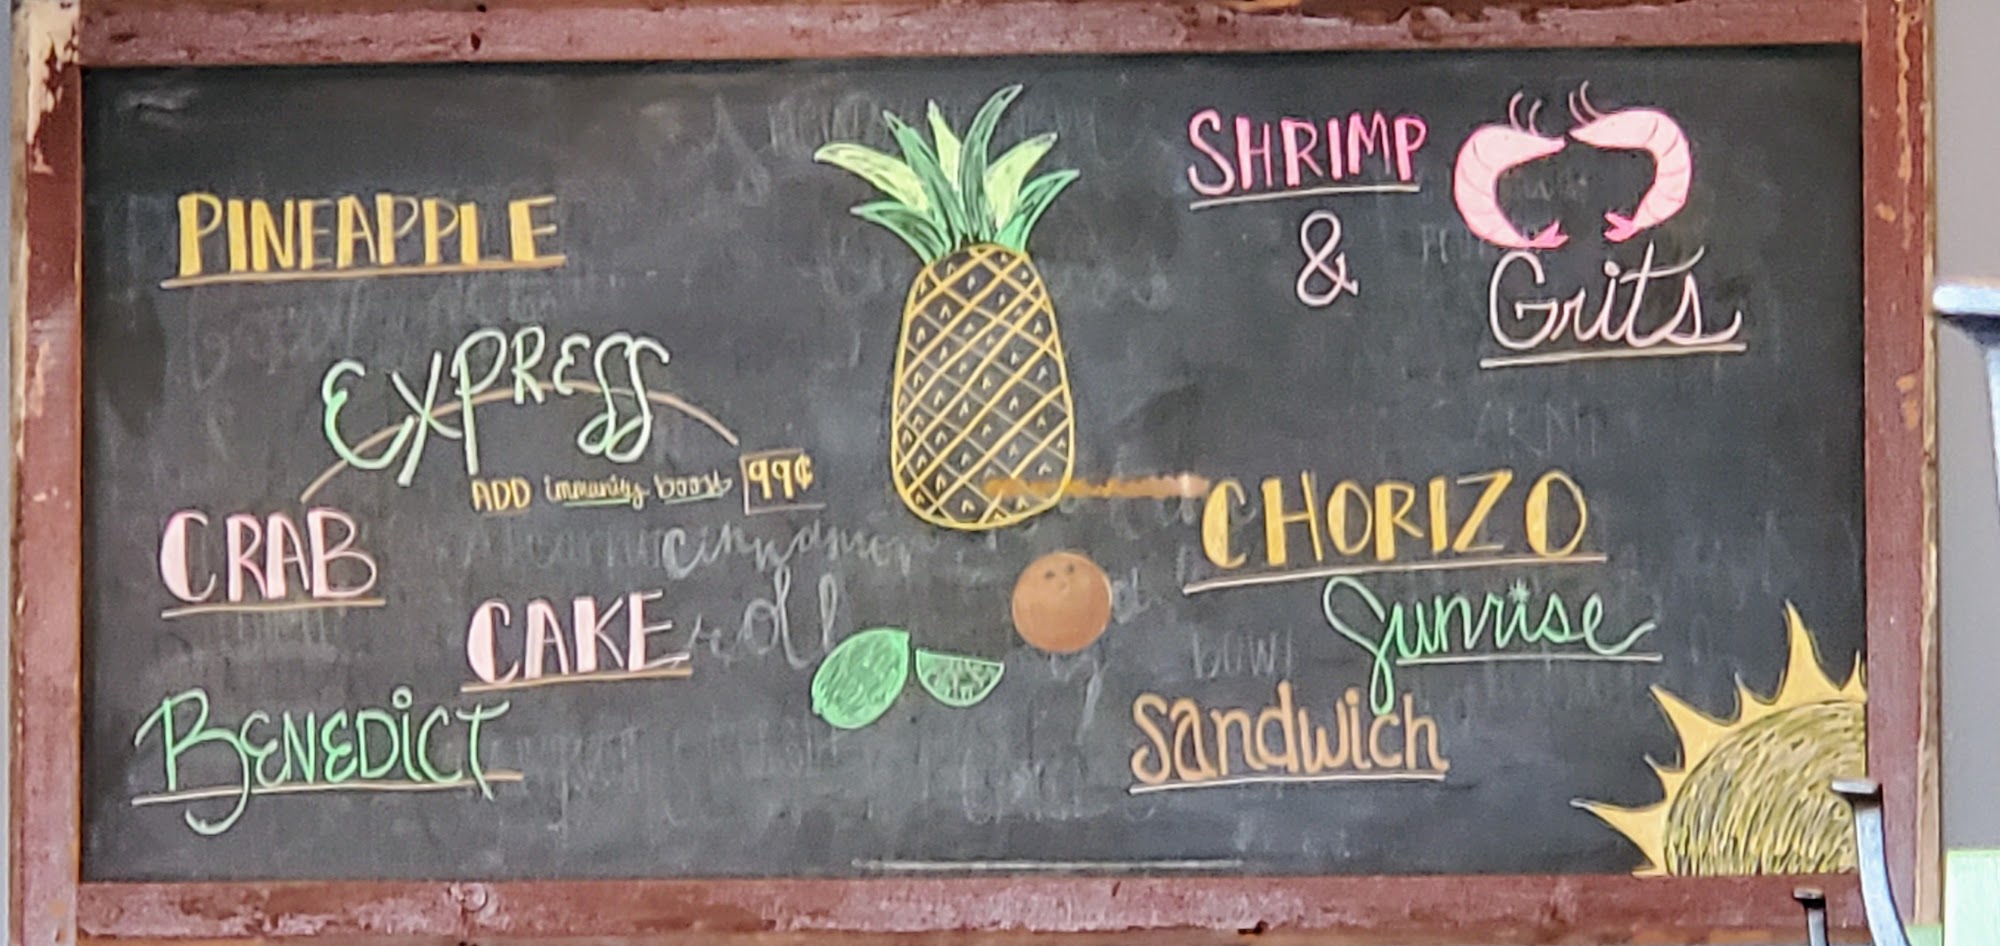 PINEAPPLE
EXPRESS
ADD immunity boost 99¢
CRAB
CAKE
BENEDICT
cinnamon
roll
SHRIMP
&
Grits
CHORIZO
Sunrise
Sandwich
bowl